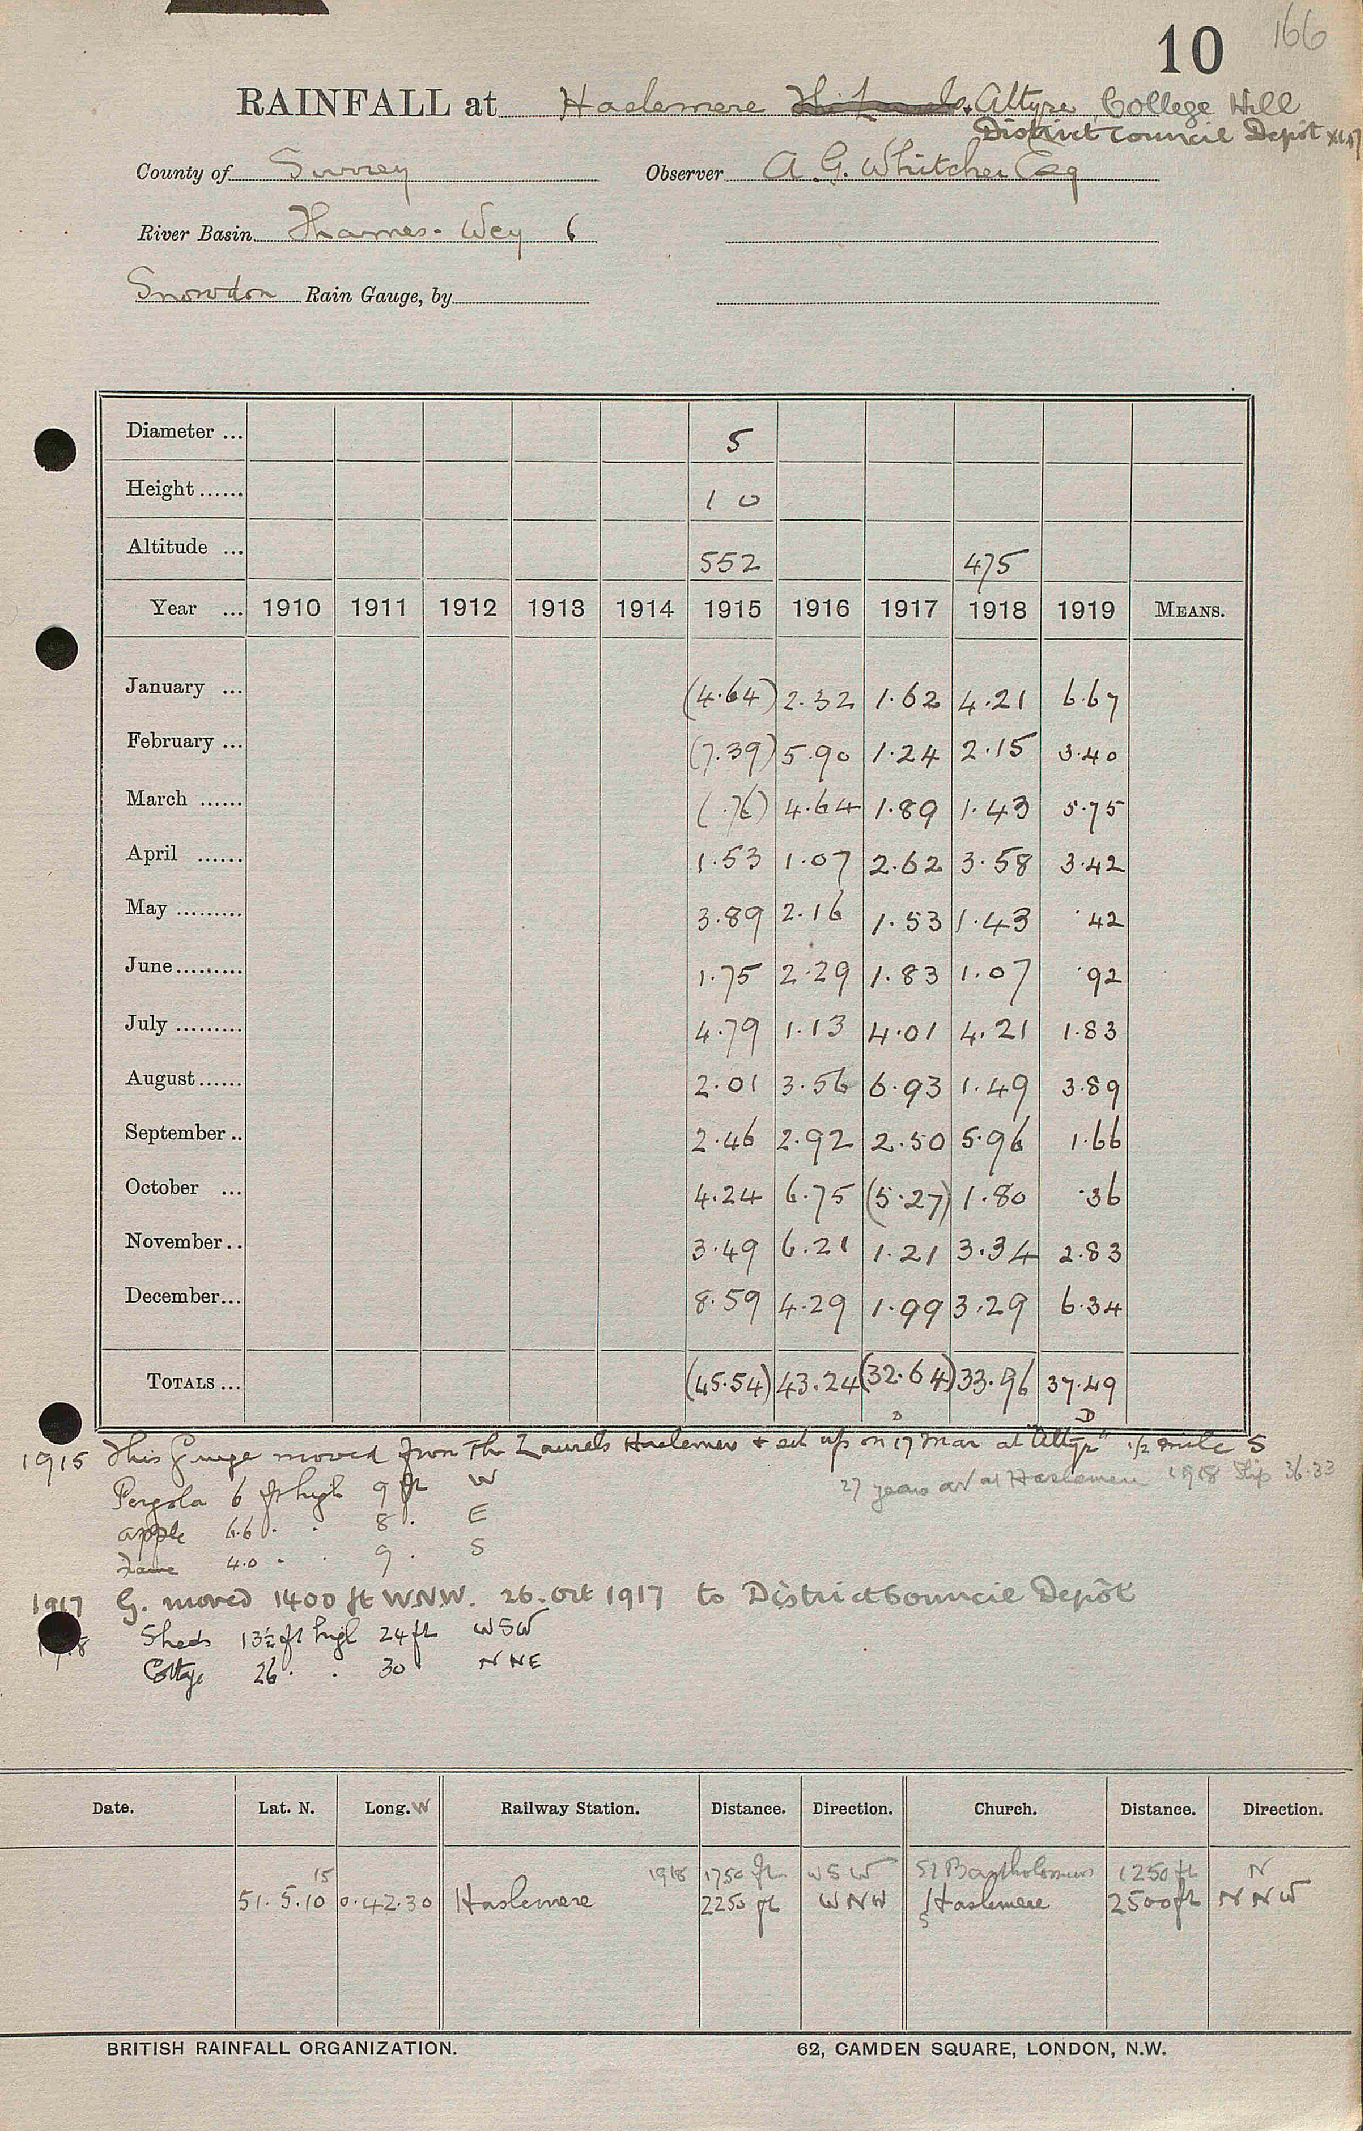 10 166
RAINFALL at Haslemere The Laurels. Altyre, College Hill
District Council Depôt XI.17
County of Surrey Observer A. G. Whitcher Esq
River Basin Thames - Wey 6
Snowdon Rain Gauge, by
Diameter ... 5
Height ...... 1 0
Altitude ... 552 475
Year ... 1910 1911 1912 1913 1914 1915 1916 1917 1918 1919 MEANS.
January ... (4.64) 2.32 1.62 4.21 6.67
February ... (7.39) 5.90 1.24 2.15 3.40
March ...... (.76) 4.64 1.89 1.43 5.75
April ...... 1.53 1.07 2.62 3.58 3.42
May ......... 3.89 2.16 1.53 1.43 .42
June ......... 1.75 2.29 1.83 1.07 .92
July ......... 4.79 1.13 4.01 4.21 1.83
August ...... 2.01 3.56 6.93 1.49 3.89
September .. 2.46 2.92 2.50 5.96 1.66
October ... 4.24 6.75 (5.27) 1.80 .36
November .. 3.49 6.21 1.21 3.34 2.83
December ... 8.59 4.29 1.99 3.29 6.34
TOTALS ... (45.54) 43.24 (32.64) 33.96 37.49
D D
1915 This Gauge moved from The Laurels Haslemere & set up on 17 Mar at "Altyre" 1/2 mile S
27 years av at Haslemere 1918 Slip 36.33
Pergola 6 ft high 9 ft W
apple 6.6 . . 8 . E
4.0 . . 9 . S
1917 G. moved 1400 ft WNW. 26. Oct 1917 to District Council Depôt
Sheds 13½ ft high 24 ft WSW
Cottage 26 . . 30 . NNE
Date. Lat. N. Long. W Railway Station. Distance. Direction. Church. Distance. Direction.
15 1918 1750 ft W S W St Bartholomews 1250 ft N
51. 5.10 0.42.30 Haslemere 2250 ft W N W Haslemere 2500 ft N N W
S
BRITISH RAINFALL ORGANIZATION. 62, CAMDEN SQUARE, LONDON, N.W.